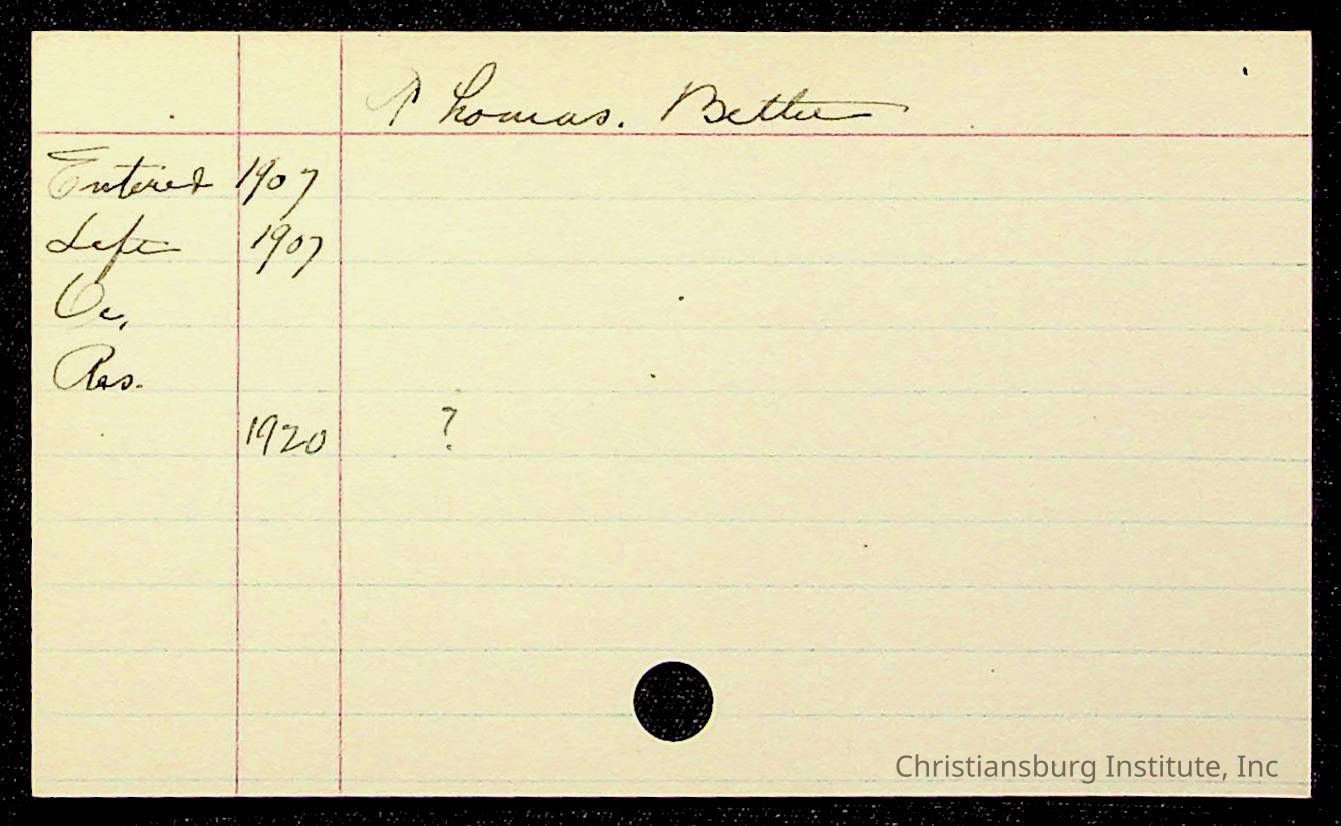 Thomas. Bettie
Entered 1907
Left 1907
Oc.
Res.
1920 ?
Christiansburg Institute, Inc